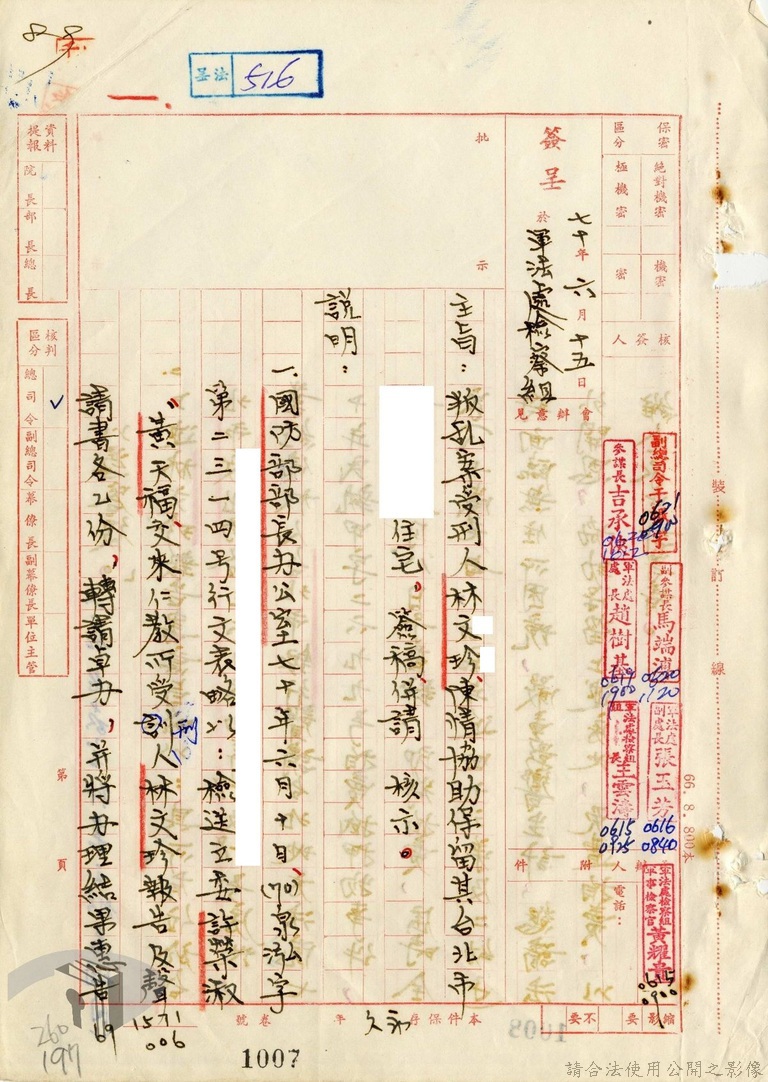 法 516
保密區分
絕對機密
極機密
機密
密
簽呈
於
七十年六月十五日
軍法處檢察組
核簽人
會辦意見
批示
資料提報
院長
部長
總長
核判區分
總司令
副總司令
幕僚長
副幕僚長
單位主管
主旨:叛乱案受刑人林文珍陳情協助保留其台北市
住宅,簽稿併請 核示。
說明:
一、國防部部長办公室七十年六月十日(70)泉泓字
第二三一四号行文表略以:檢送立委許榮淑
、黃天福交來仁教所受刑人林文珍報告及聲
請書各乙份,轉請卓办,并將办理結果惠告
副總司令
參謀長
副參謀長馬端浦
軍法處處長趙樹基
軍法處副處長張玉芳
軍法處檢察組組長王雲濤
軍法處檢察組軍事檢察官黃耀
0620
1120
0619
1900
0616
0840
0615
0925
0615
0900
電話:
附件
裝訂線
66.8.800本
縮影 要 不要
本件保存 永久 年
卷號
第 頁
1571
006
69
260
197
1007
1008
請合法使用公開之影像